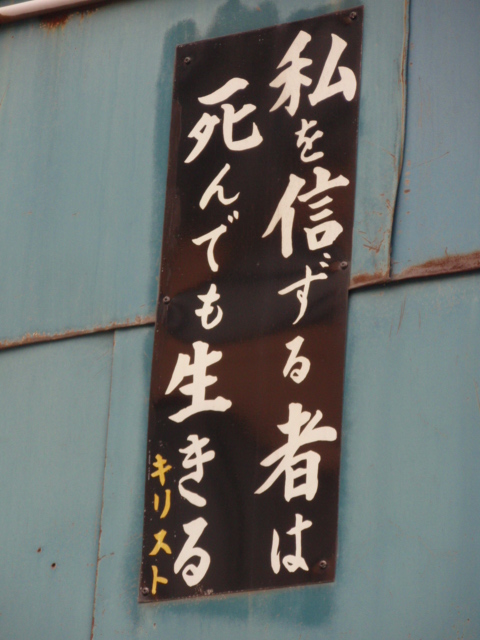 私を信ずる者は
死んでも生きる
キリスト